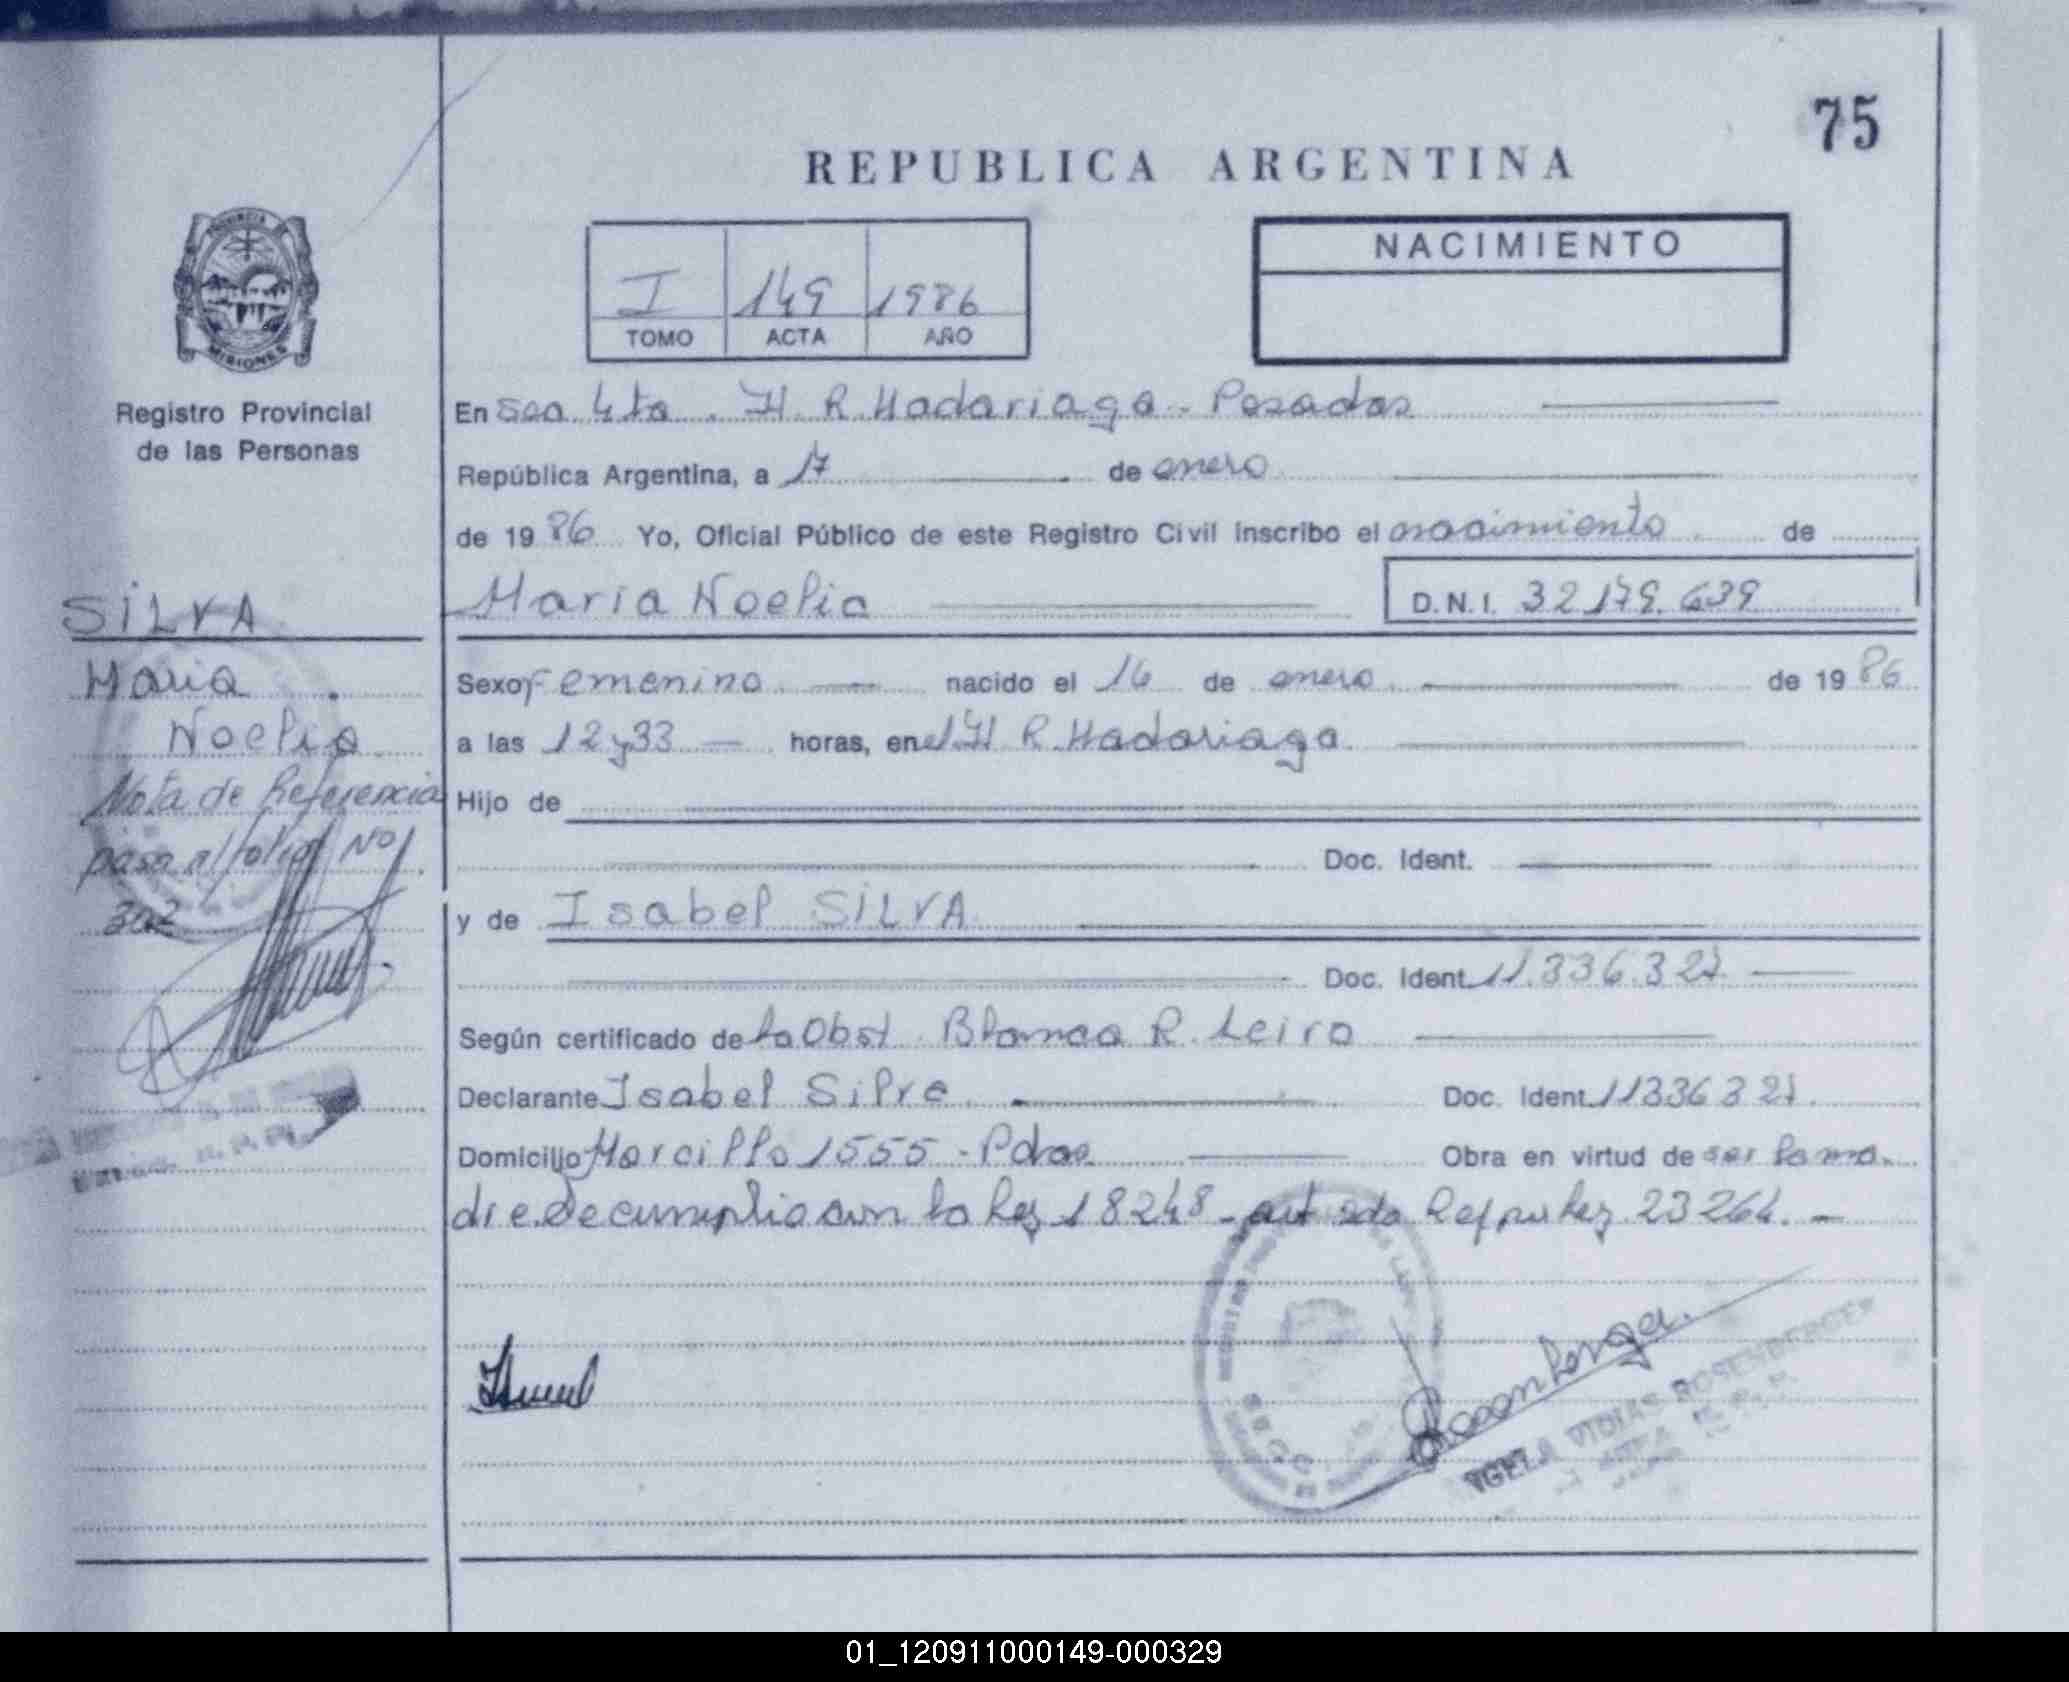 75
REPUBLICA ARGENTINA
PROVINCIA DE
MISIONES
Registro Provincial
de las Personas
I 149 1986
TOMO ACTA AÑO
NACIMIENTO
En Sec 4ta. H. R. Madariaga - Posadas
República Argentina, a 17 de enero
de 1986 Yo, Oficial Público de este Registro Civil inscribo el nacimiento de
Maria Noelia
D.N.I. 32.179.639
SILVA
Maria
Noelia
Nota de Referencia
pasa al folio Nº
302
Sexo Femenino nacido el 16 de enero de 1986
a las 12 y 33 horas, en el H R. Madariaga
Hijo de
Doc. Ident.
y de Isabel SILVA
Doc. Ident. 11.336.321
Según certificado de la Obst. Blanca R. Leiro
Declarante Isabel Silva Doc. Ident. 11336321
Domicilio 1555 - Pdas Obra en virtud de ser la ma-
dre. Se cumplio con la Ley 18248 - art Ley 23264. -
ROSENBERGER
01_120911000149-000329